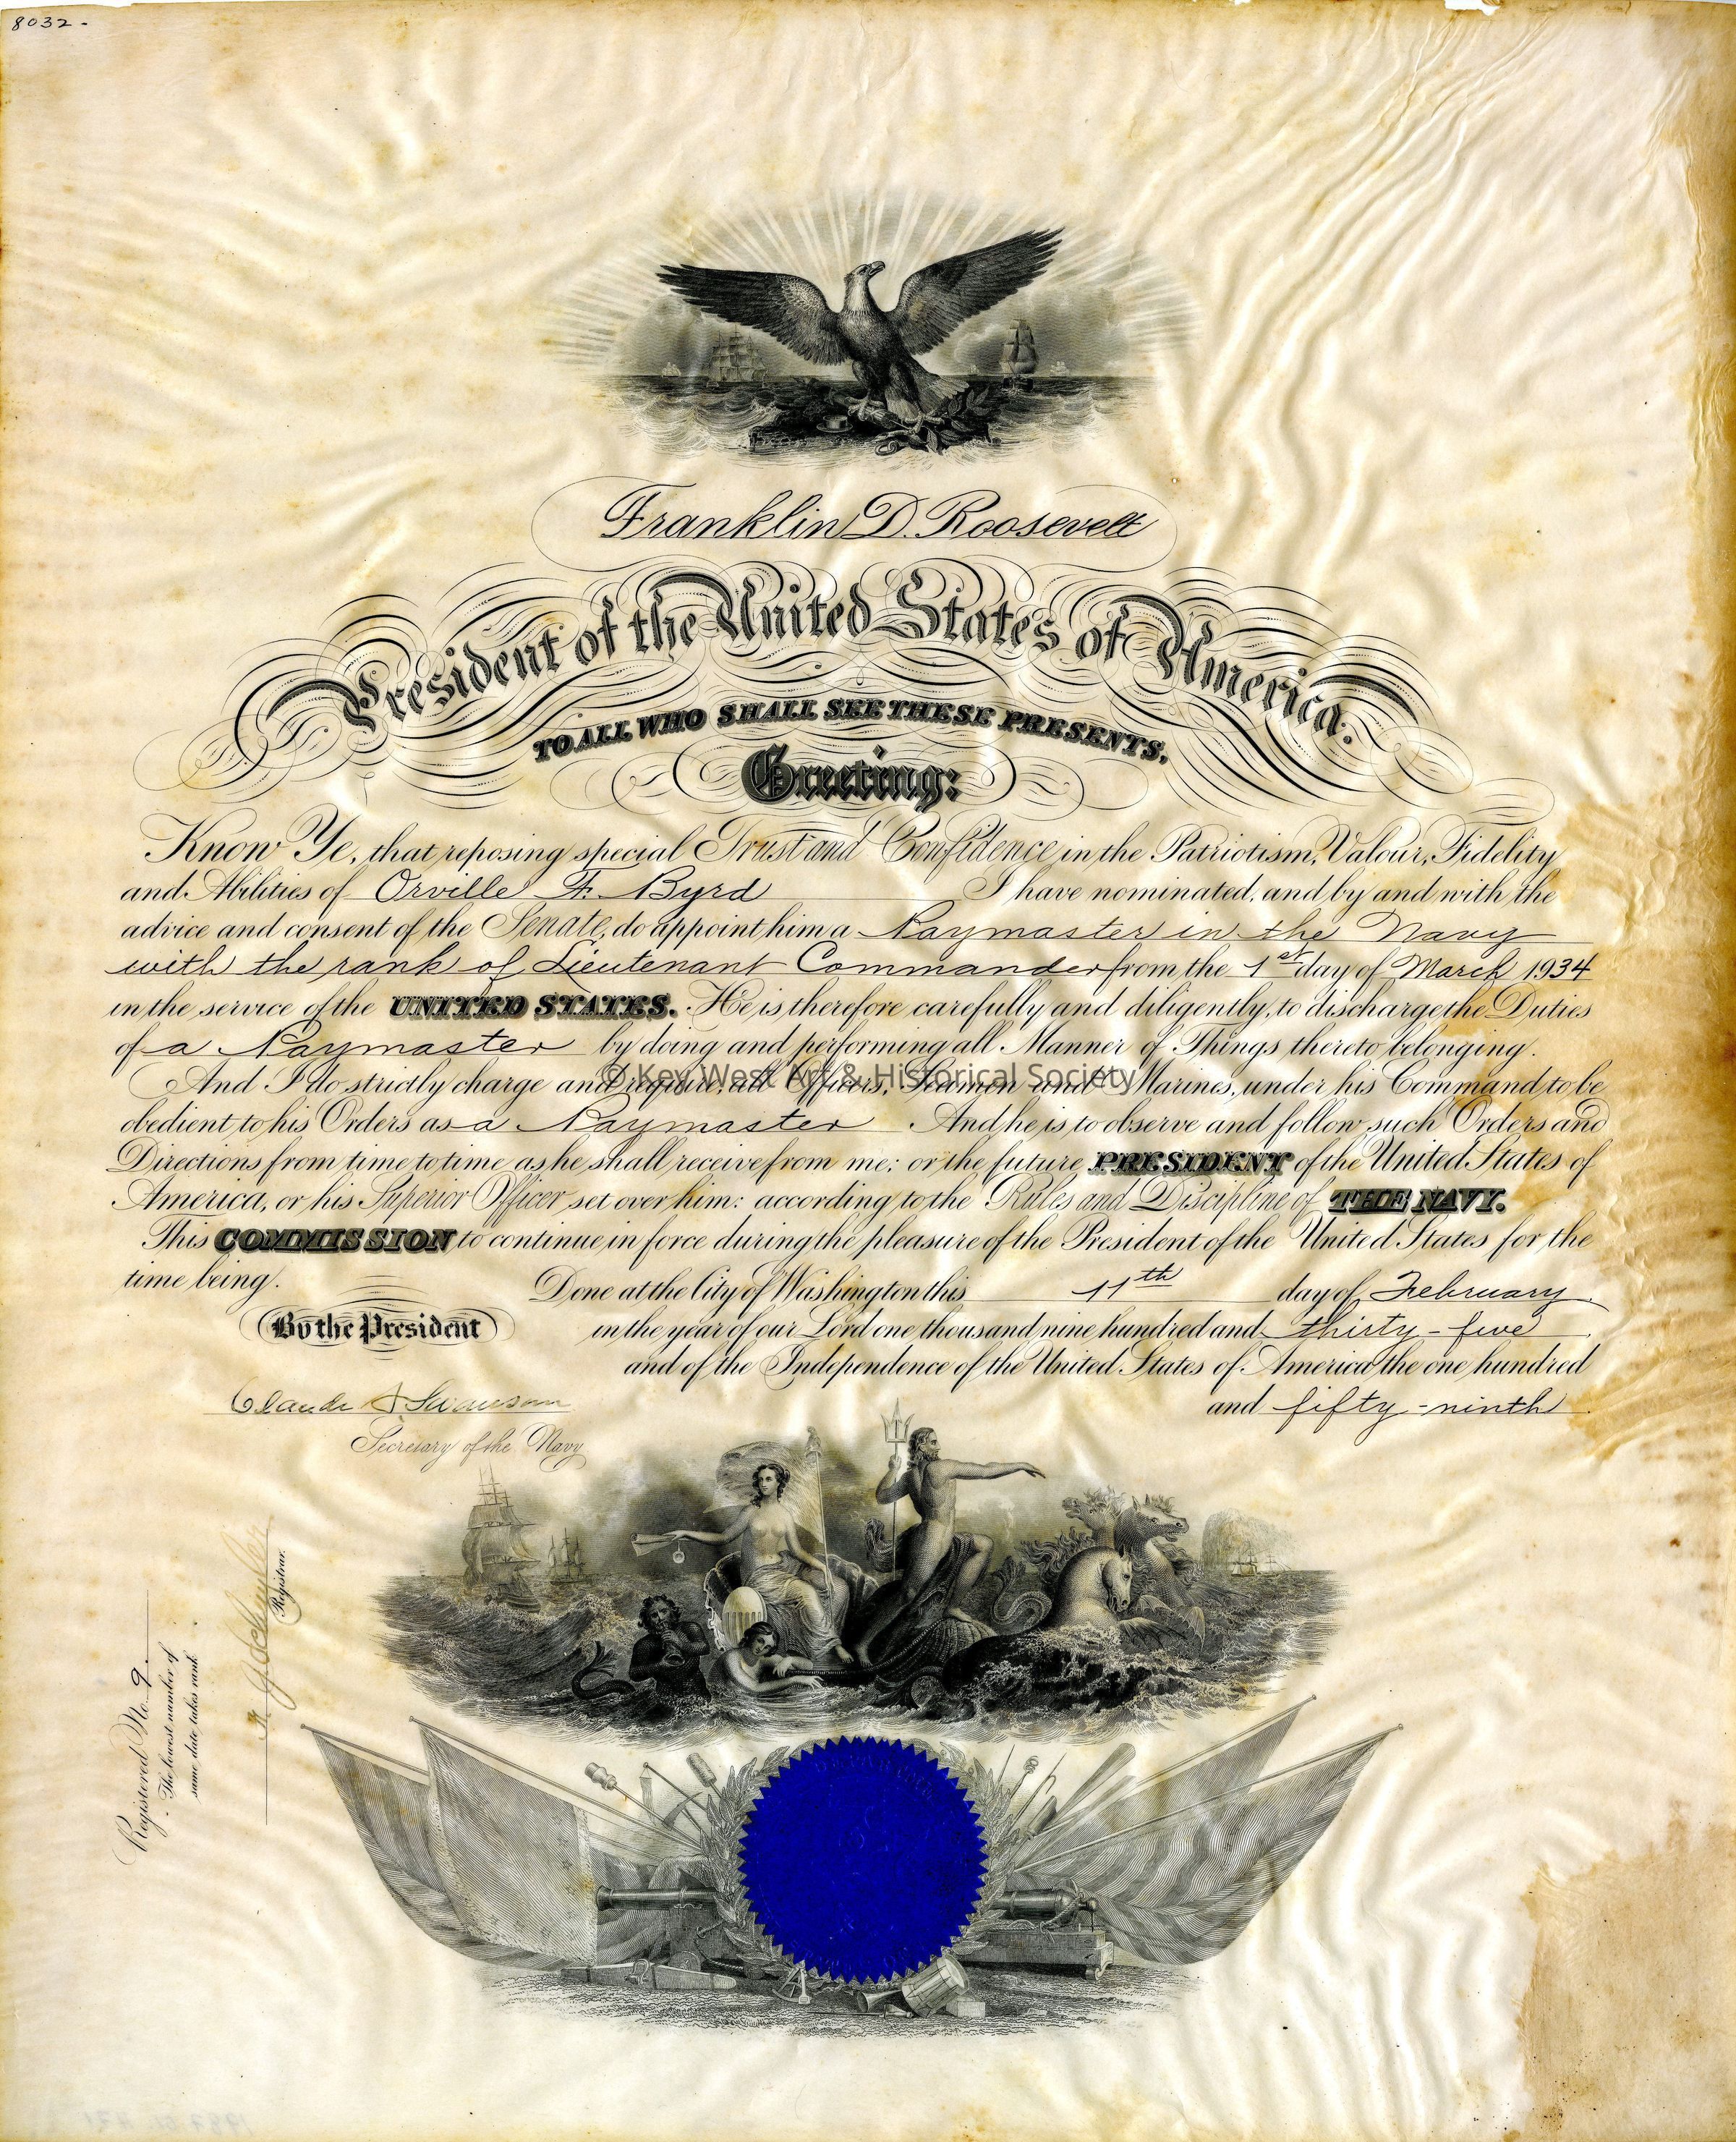 8032-
Franklin D. Roosevelt
President of the United States of America.
TO ALL WHO SHALL SEE THESE PRESENTS,
Greeting:
Know Ye, that reposing special Trust and Confidence in the Patriotism, Valour, Fidelity
and Abilities of Orville F. Byrd I have nominated, and by and with the
advice and consent of the Senate, do appoint him a Paymaster in the Navy
with the rank of Lieutenant Commander from the 1st day of March 1934
in the service of the UNITED STATES. He is therefore carefully and diligently, to discharge the Duties
of a Paymaster by doing and performing all Manner of Things thereto belonging.
And I do strictly charge and require, all Officers, Seamen and Marines, under his Command to be
© Key West Art & Historical Society
obedient to his Orders as a Paymaster And he is to observe and follow such Orders and
Directions from time to time as he shall receive from me; or the future PRESIDENT of the United States of
America, or his Superior Officer set over him: according to the Rules and Discipline of THE NAVY.
This COMMISSION to continue in force during the pleasure of the President of the United States for the
time being.
Done at the City of Washington this 11th day of February
By the President
in the year of our Lord one thousand nine hundred and thirty-five
and of the Independence of the United States of America the one hundred
and fifty-ninth
Claude A Swanson
Secretary of the Navy
Registrar.
Registered No. 9.
The lowest number of
same date takes rank.